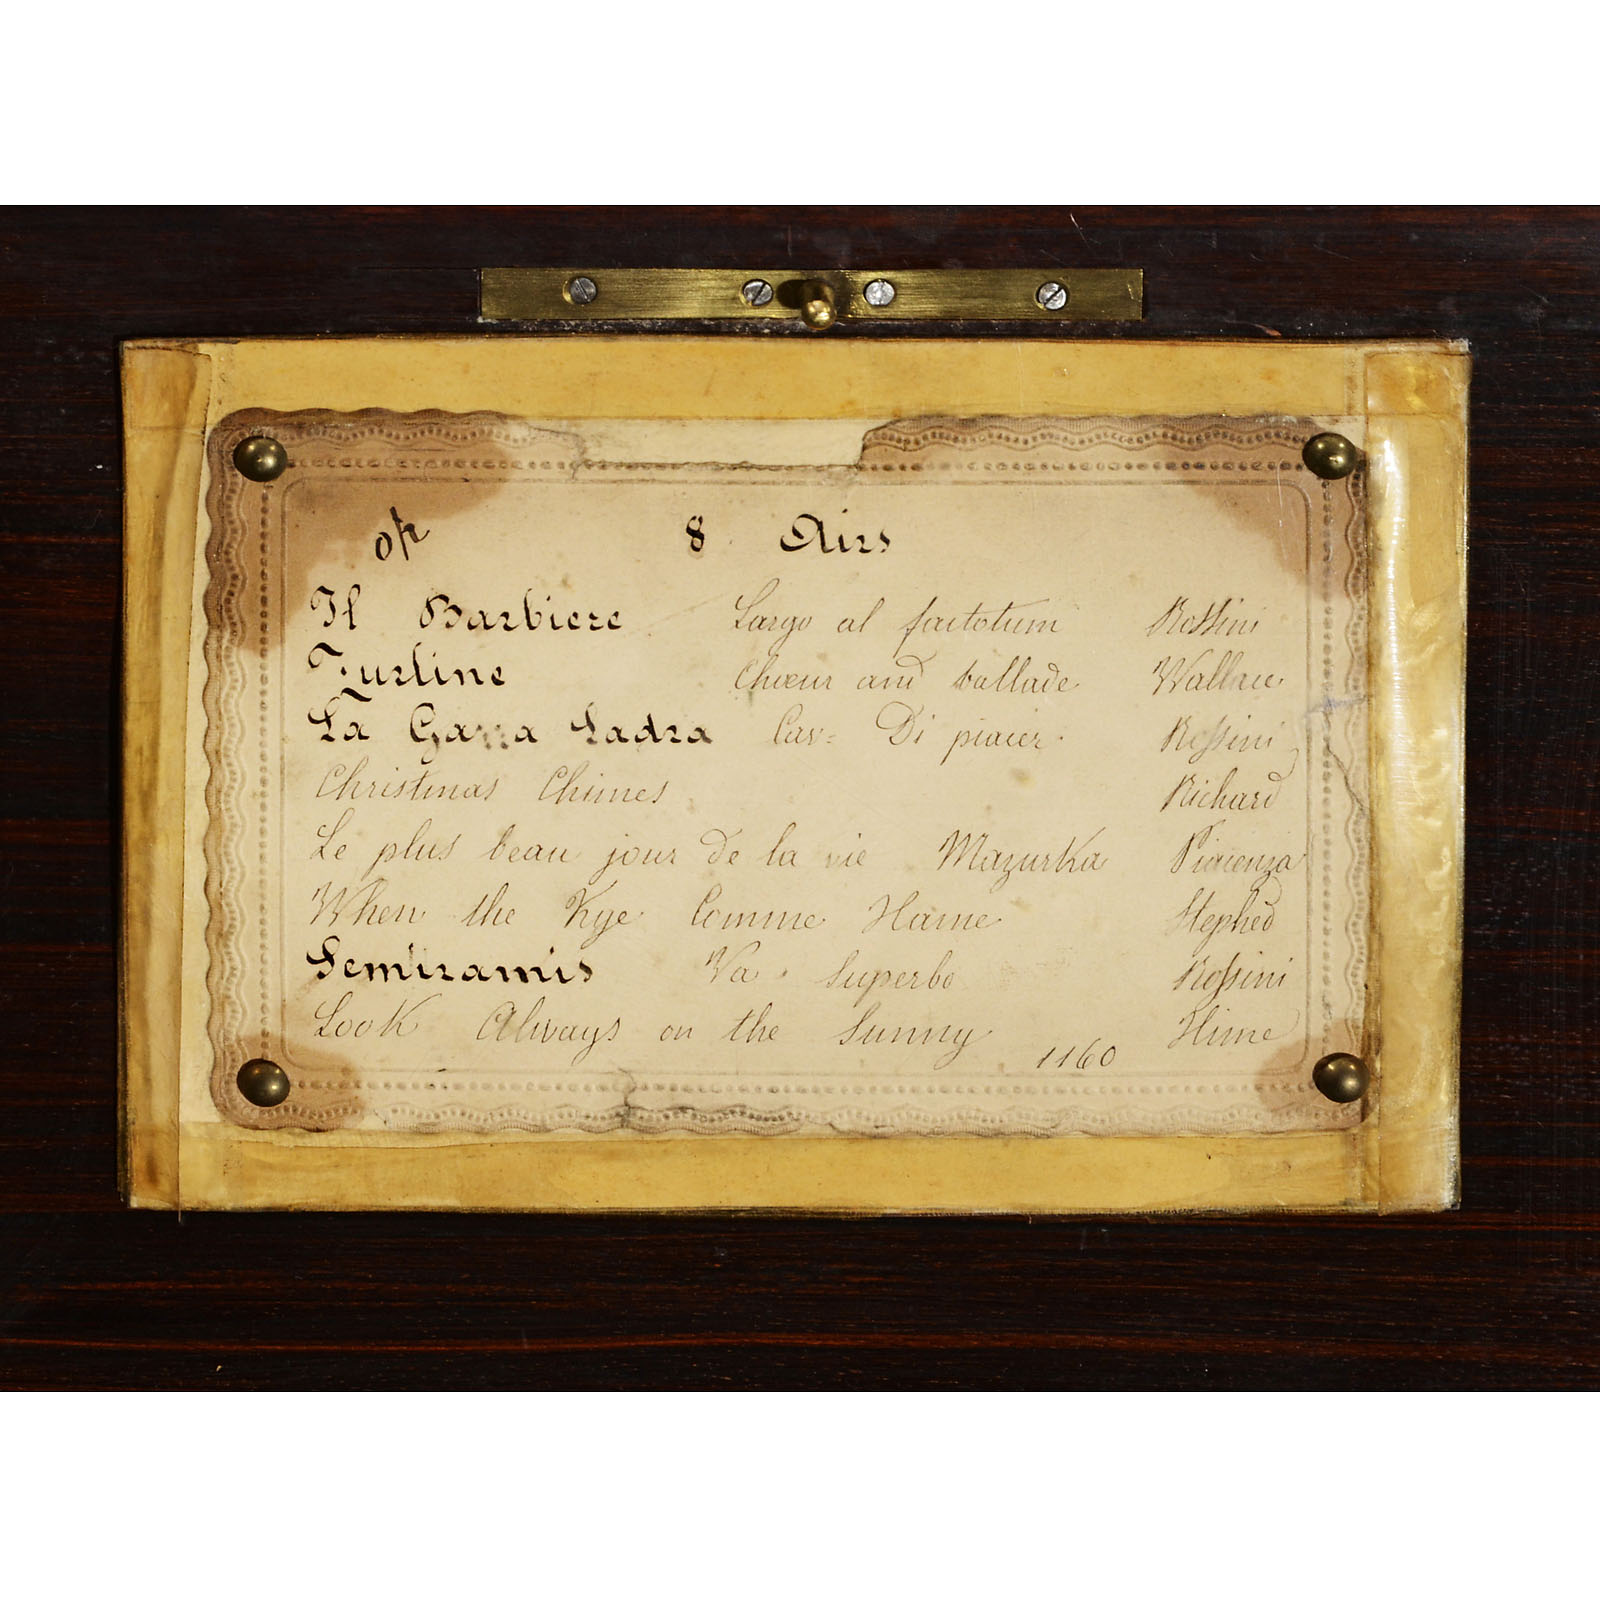 op 8 Airs
Il Barbiere Largo al factotum Rossini
Lurline Chœur and ballade Wallace
La Gazza Ladra Cav= Di piacer Rossini
Christmas Chimes Richard
Le plus beau jour de la vie Mazurka Piacenza
When the Kye Comme Hame Stephed
Semiramis Va Superbo Rossini
Look Always on the Sunny Hime
1160